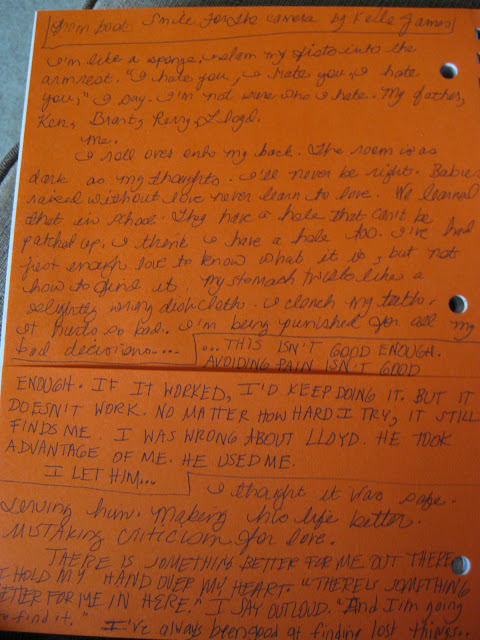 from book Smile for the camera by Kelle James
I'm like a sponge. I slam my fists into the
armrest. "I hate you, I hate you, I hate
you," I say. I'm not sure who I hate. My father,
Ken, Brant, Perry, Lloyd.
Me.
I roll over onto my back. The room is as
dark as my thoughts. I'll never be right. Babies
raised without love never learn to love. We learned
that in school. They have a hole that can't be
patched up. I think I have a hole too. I've had
just enough love to know what it is, but not
how to find it. My stomach twists like a
slightly wrung dishcloth. I clench my teeth.
It hurts so bad. I'm being punished for all my
bad decisions....
...THIS ISN'T GOOD ENOUGH.
AVOIDING PAIN ISN'T GOOD
ENOUGH. IF IT WORKED, I'D KEEP DOING IT. BUT IT
DOESN'T WORK. NO MATTER HOW HARD I TRY, IT STILL
FINDS ME. I WAS WRONG ABOUT LLOYD. HE TOOK
ADVANTAGE OF ME. HE USED ME.
I LET HIM...
I thought it was safe.
Loving him. Making his life better.
MISTAKING CRITICISM for love.
THERE IS SOMETHING BETTER FOR ME OUT THERE
I HOLD MY HAND OVER MY HEART. "THERE'S SOMETHING
BETTER FOR ME IN HERE." I SAY OUTLOUD. "And I'm going
to find it." I've always been good at finding lost things...